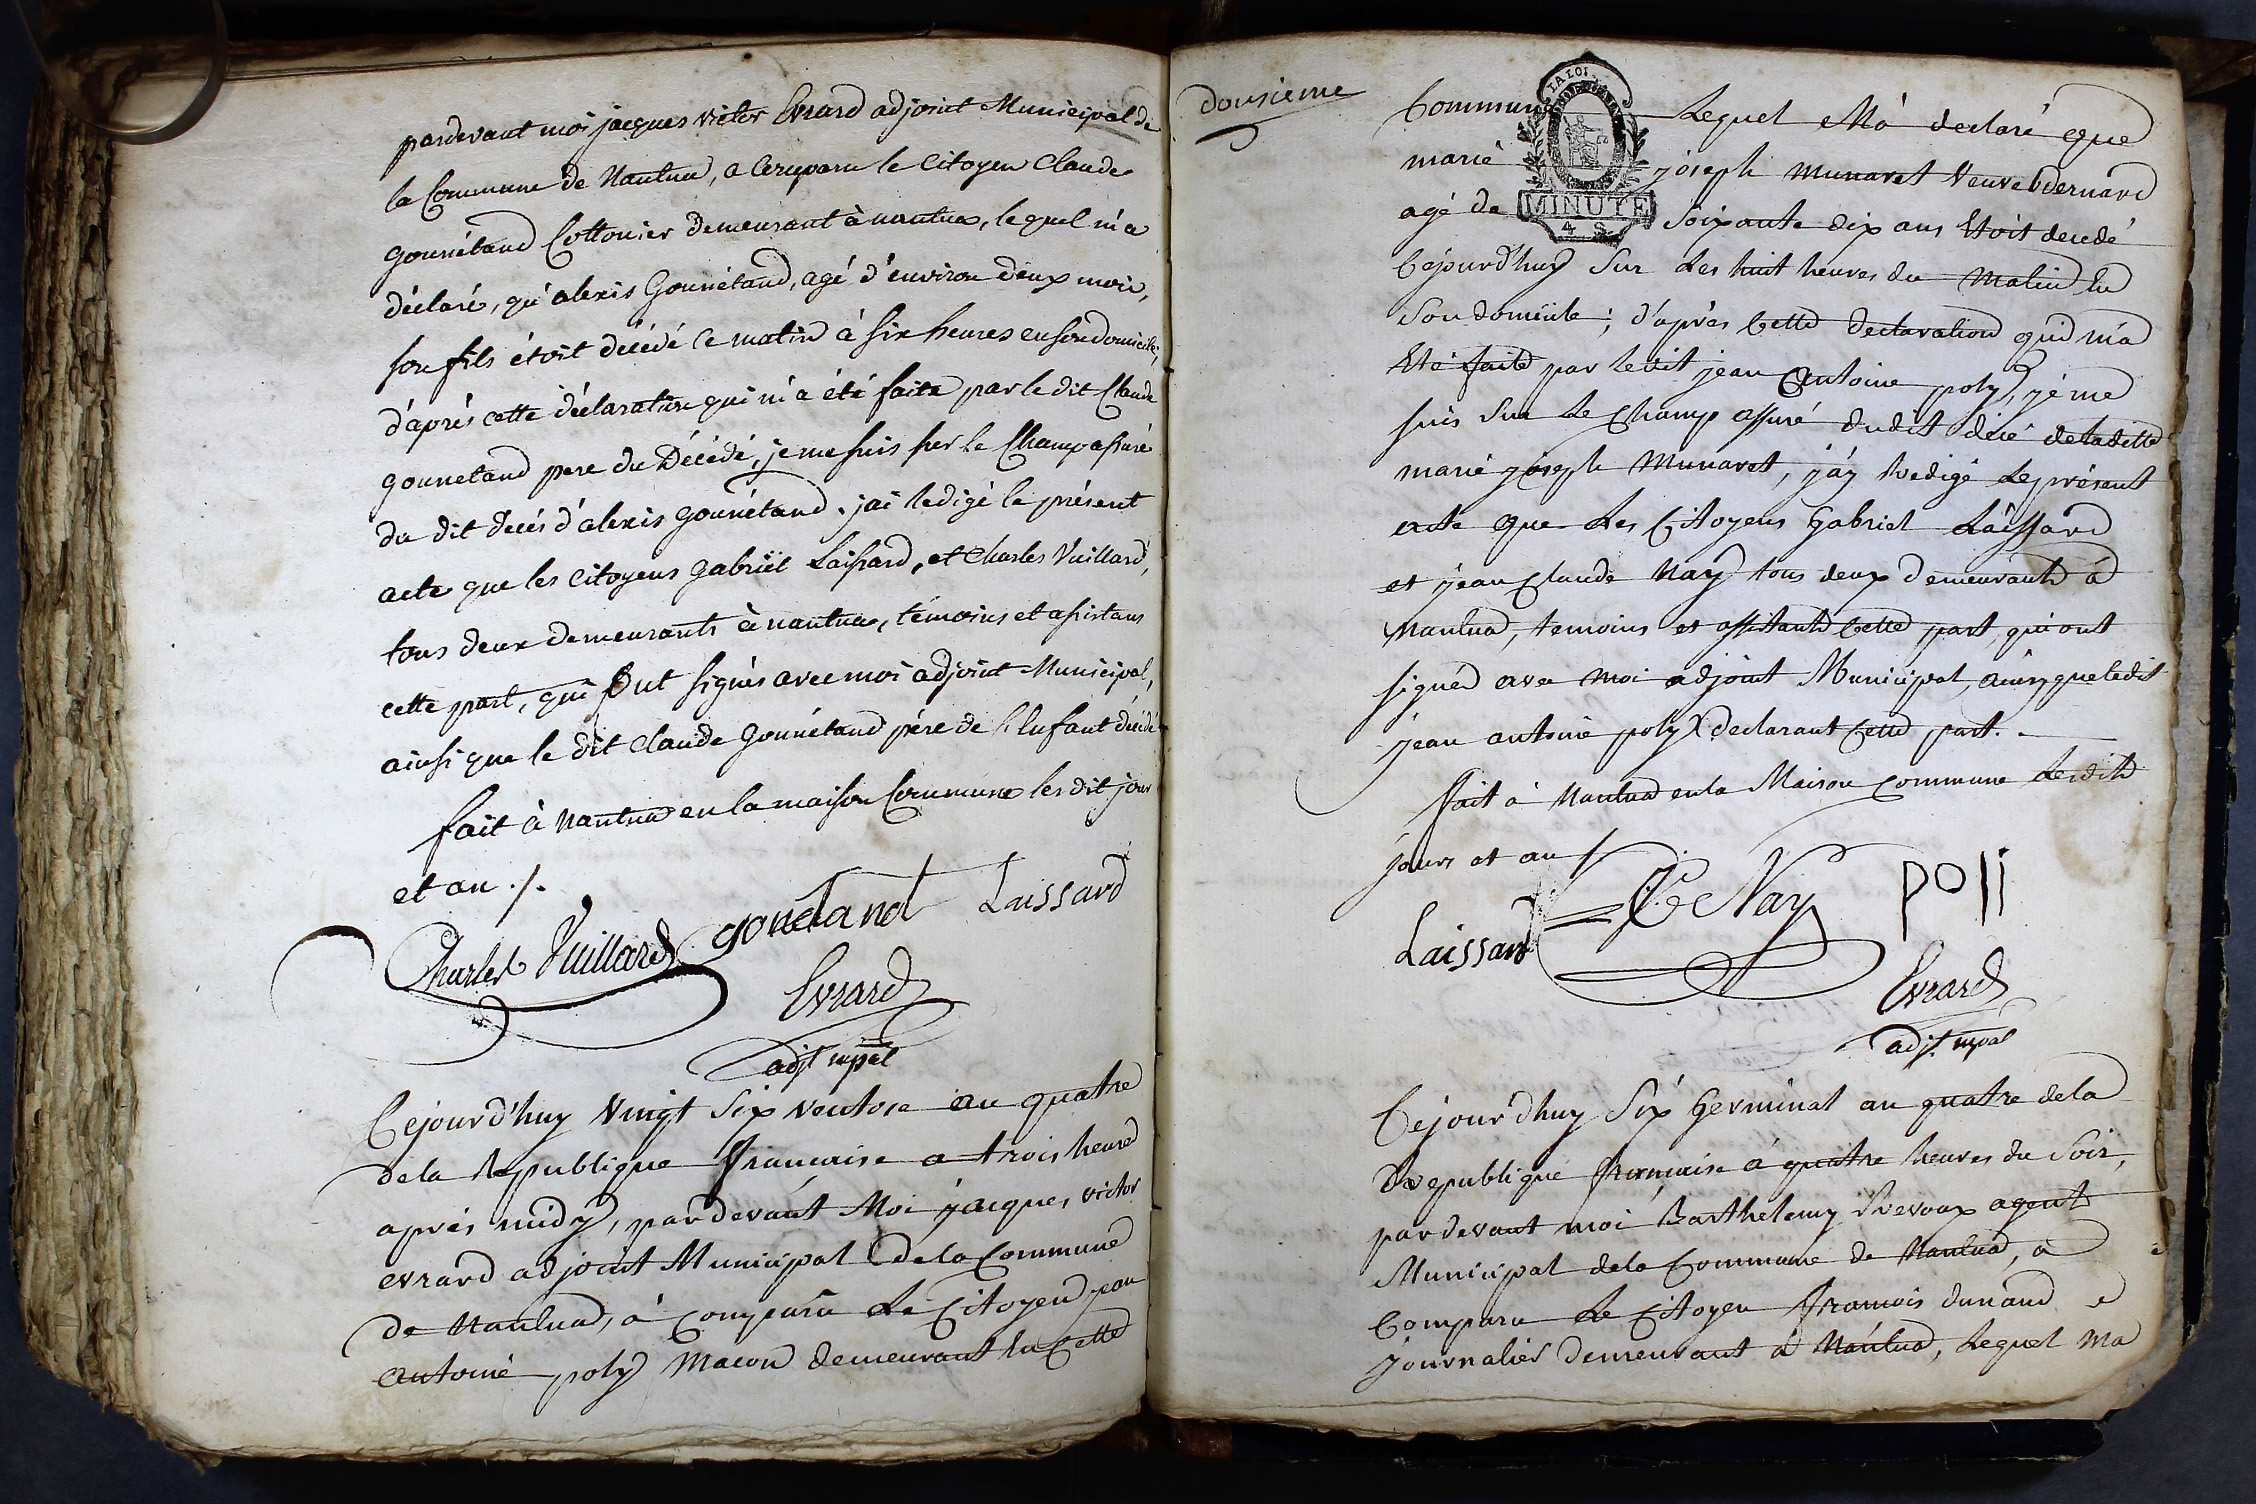 pardevant moi jacques victor Evrard adjoint Municipal de
la Commune de Nantua, a Comparu le Citoyen Claude
gounétand Cottonier demeurant à nantua, lequel m'a
déclaré, qu'alexis Gounétand, agé d'environ deux mois,
son fils étoit décédé ce matin à six heures en son domicile;
d'aprés cette déclaration qui m'a été faite par le dit Claude
gounetand pere du Décédé, je me suis sur le Champ assuré
du dit decés d'alexis gounétand. jai redigé le présent
acte que les citoyens gabriël Laissard, et Charles Vuillard,
tous deux demeurants à nantua, témoins et assistans
cette part, qui ont signés avec moi adjoint Municipal,
ainsi que le dit Claude gounétand pére de l'Enfant décédé
fait à Nantua en la maison Commune les dit jour
et an ./.
Charles Vuillard gonetand Laissard
Evrard
adjt mpal
Cejourd'huy Vingt Six ventose an quatre
de la Republique française a trois heures
aprés midy, pardevant Moi jacques victor
evrard adjoint Municipal de la Commune
de Nantua, à Comparu Le Citoyen jean
antoine poly Macon demeurant En Cette
dousieme
Commune Lequel M'a declaré que
marie joseph Munaret Veuve bernard
agé de Soixante dix ans Etoit decedé
Cejourd'huy Sur Les huit heures du Matin En
Son domicile; d'après Cette declaration qui m'a
Eté faite par le dit jean antoine poly, je me
suis Sur Le Champ assuré dudit décé de laditte
marie joseph Munaret, j'ay Redigé Le présent
acte que Les Citoyens Gabriel Laissard
et jean Claude Nay tous deux demeurants à
Nantua, temoins et assistants Cette part, qui ont
signés avec moi adjoint Municipal, ainsy que ledit
jean antoine poly declarant Cette part.
fait à Nantua en la Maison commune Lesdits
jours et an /.
Laissard JC Nay poli
Evrard
adjt. mpal
Cejourd'huy Six Germinal an quatre de la
Republique française à quatre heures du Soir,
pardevant moi Barthelemy agent
Municipal de la Commune de Nantua, à
Comparu Le Citoyen françois dunand
journalier demeurant a Nantua, Lequel Ma
LA LOI
MINUTE
4. S.